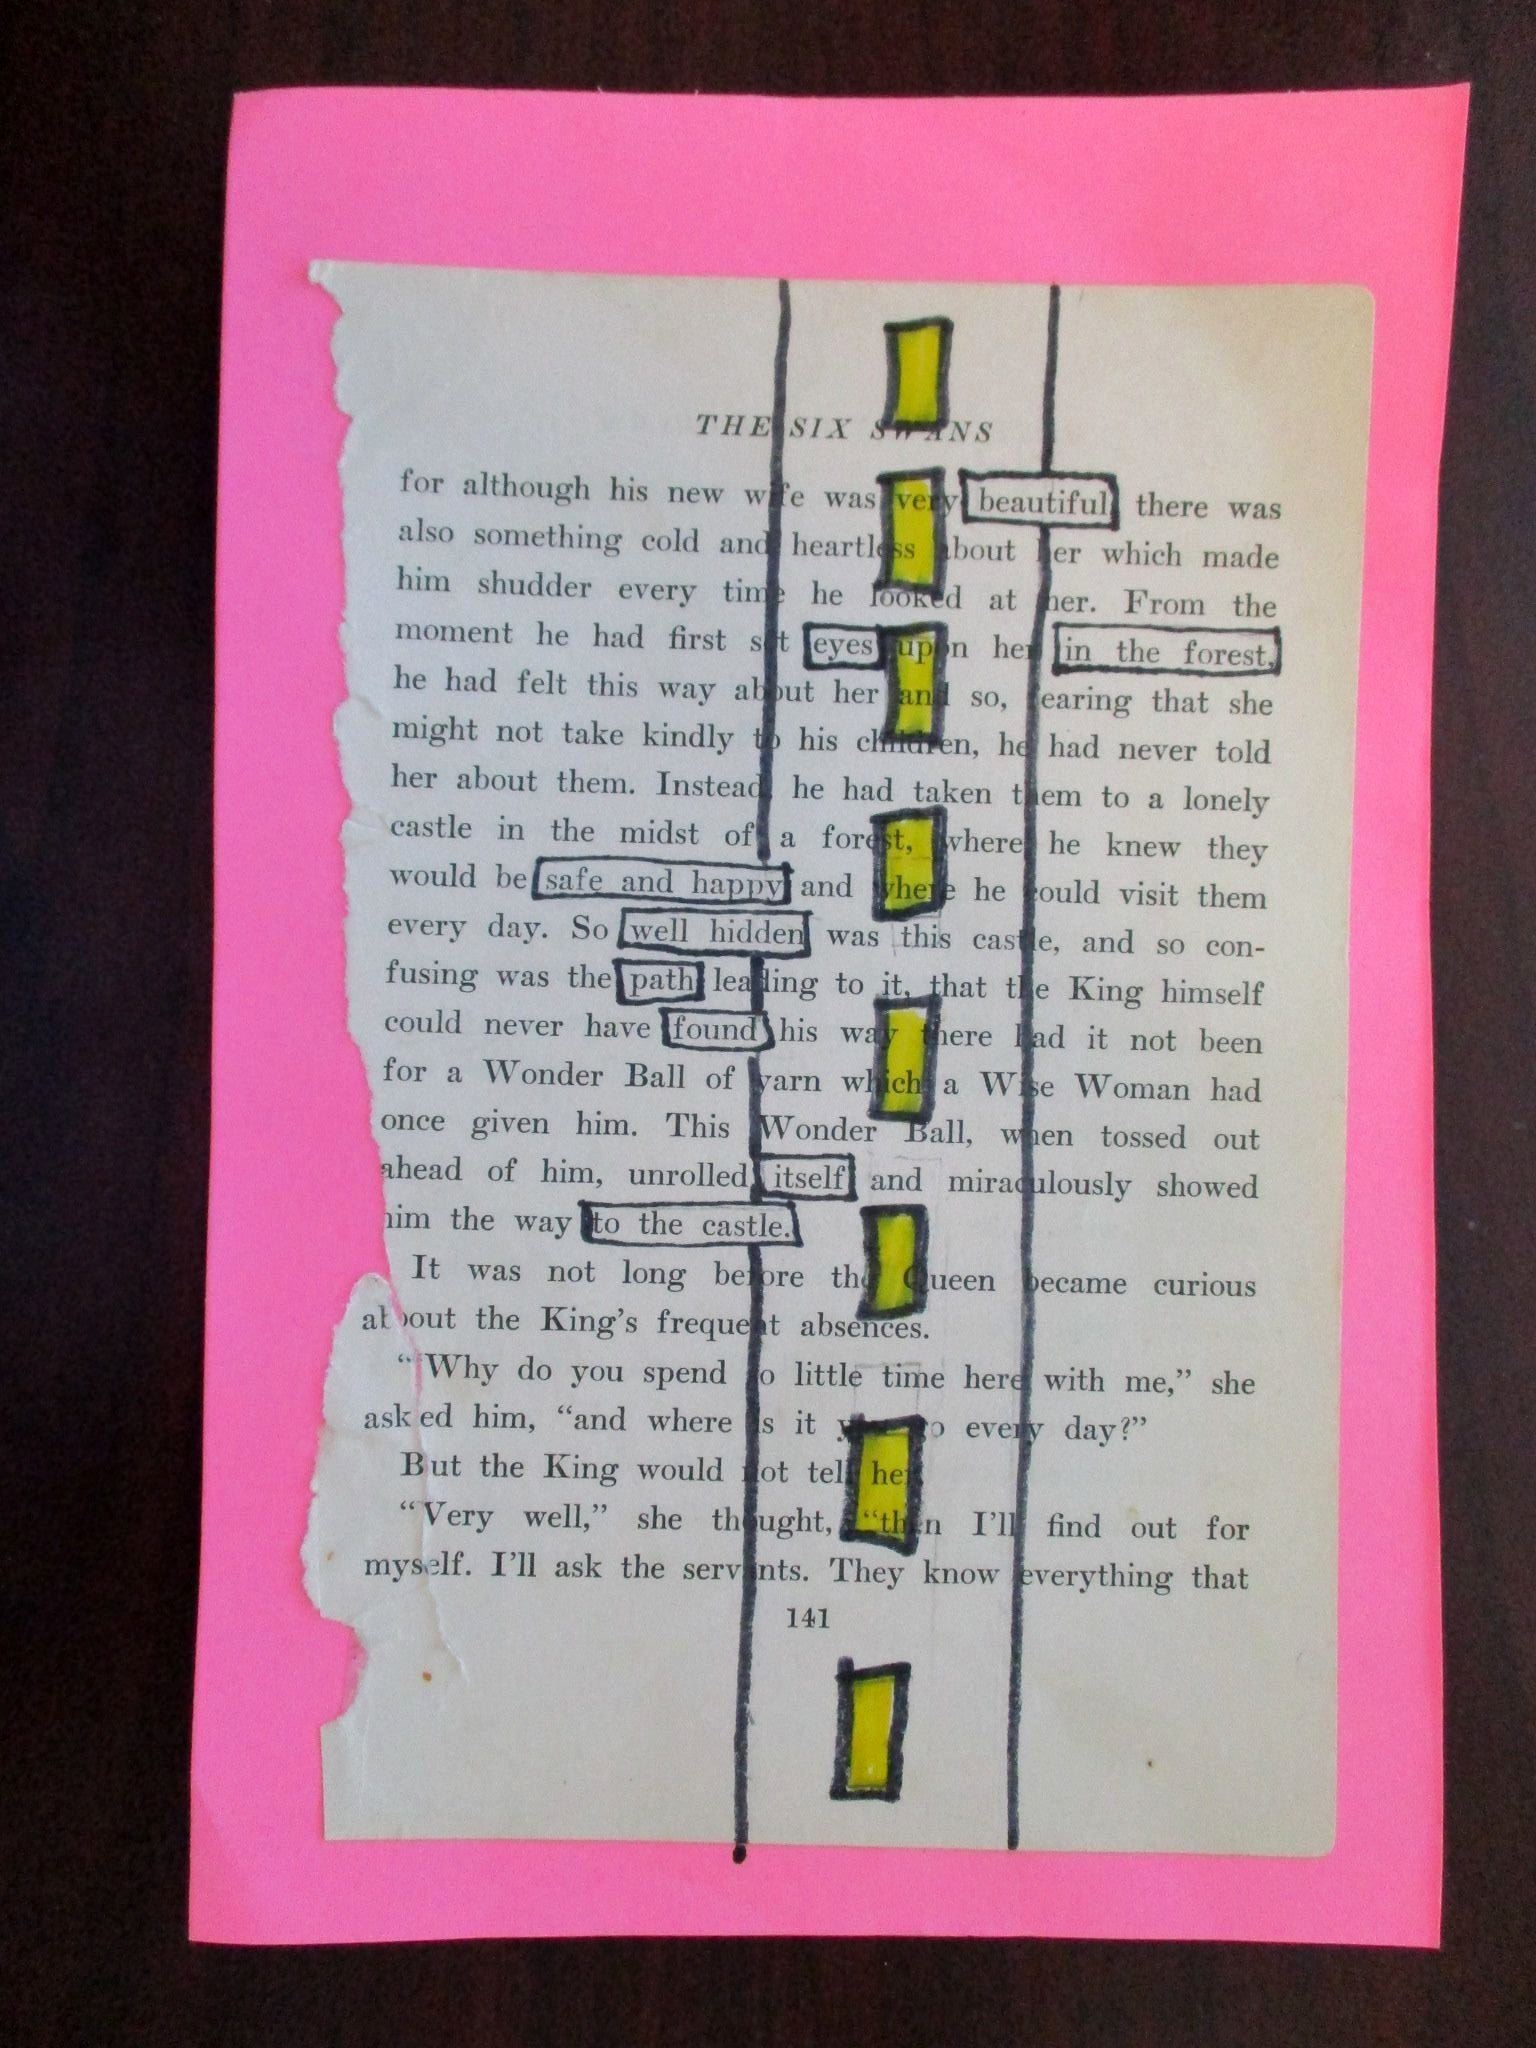 THE SIX SWANS
for although his new wife was very beautiful there was
also something cold and heartless about her which made
him shudder every time he looked at her. From the
moment he had first set eyes upon her in the forest,
he had felt this way about her and so, fearing that she
might not take kindly to his children, he had never told
her about them. Instead he had taken them to a lonely
castle in the midst of a forest, where he knew they
would be safe and happy and where he could visit them
every day. So well hidden was this castle, and so con-
fusing was the path leading to it, that the King himself
could never have found his way there had it not been
for a Wonder Ball of yarn which a Wise Woman had
once given him. This Wonder Ball, when tossed out
ahead of him, unrolled itself and miraculously showed
him the way to the castle.
It was not long before the Queen became curious
about the King's frequent absences.
“Why do you spend so little time here with me,” she
asked him, “and where is it you go every day?”
But the King would not tell her.
“Very well,” she thought, “then I'll find out for
myself. I'll ask the servants. They know everything that
141